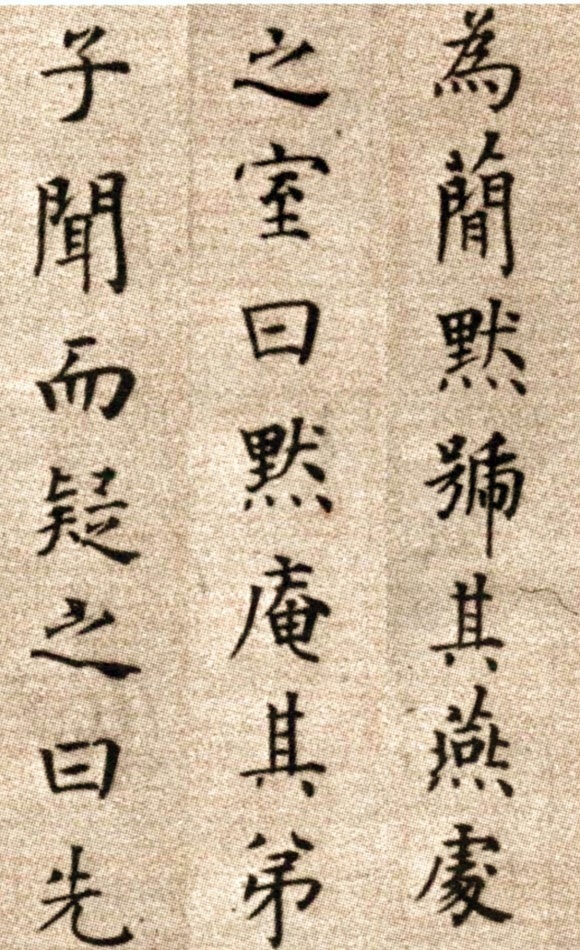 為蕳黙號其燕處
之室曰黙庵其弟
子聞而疑之曰先